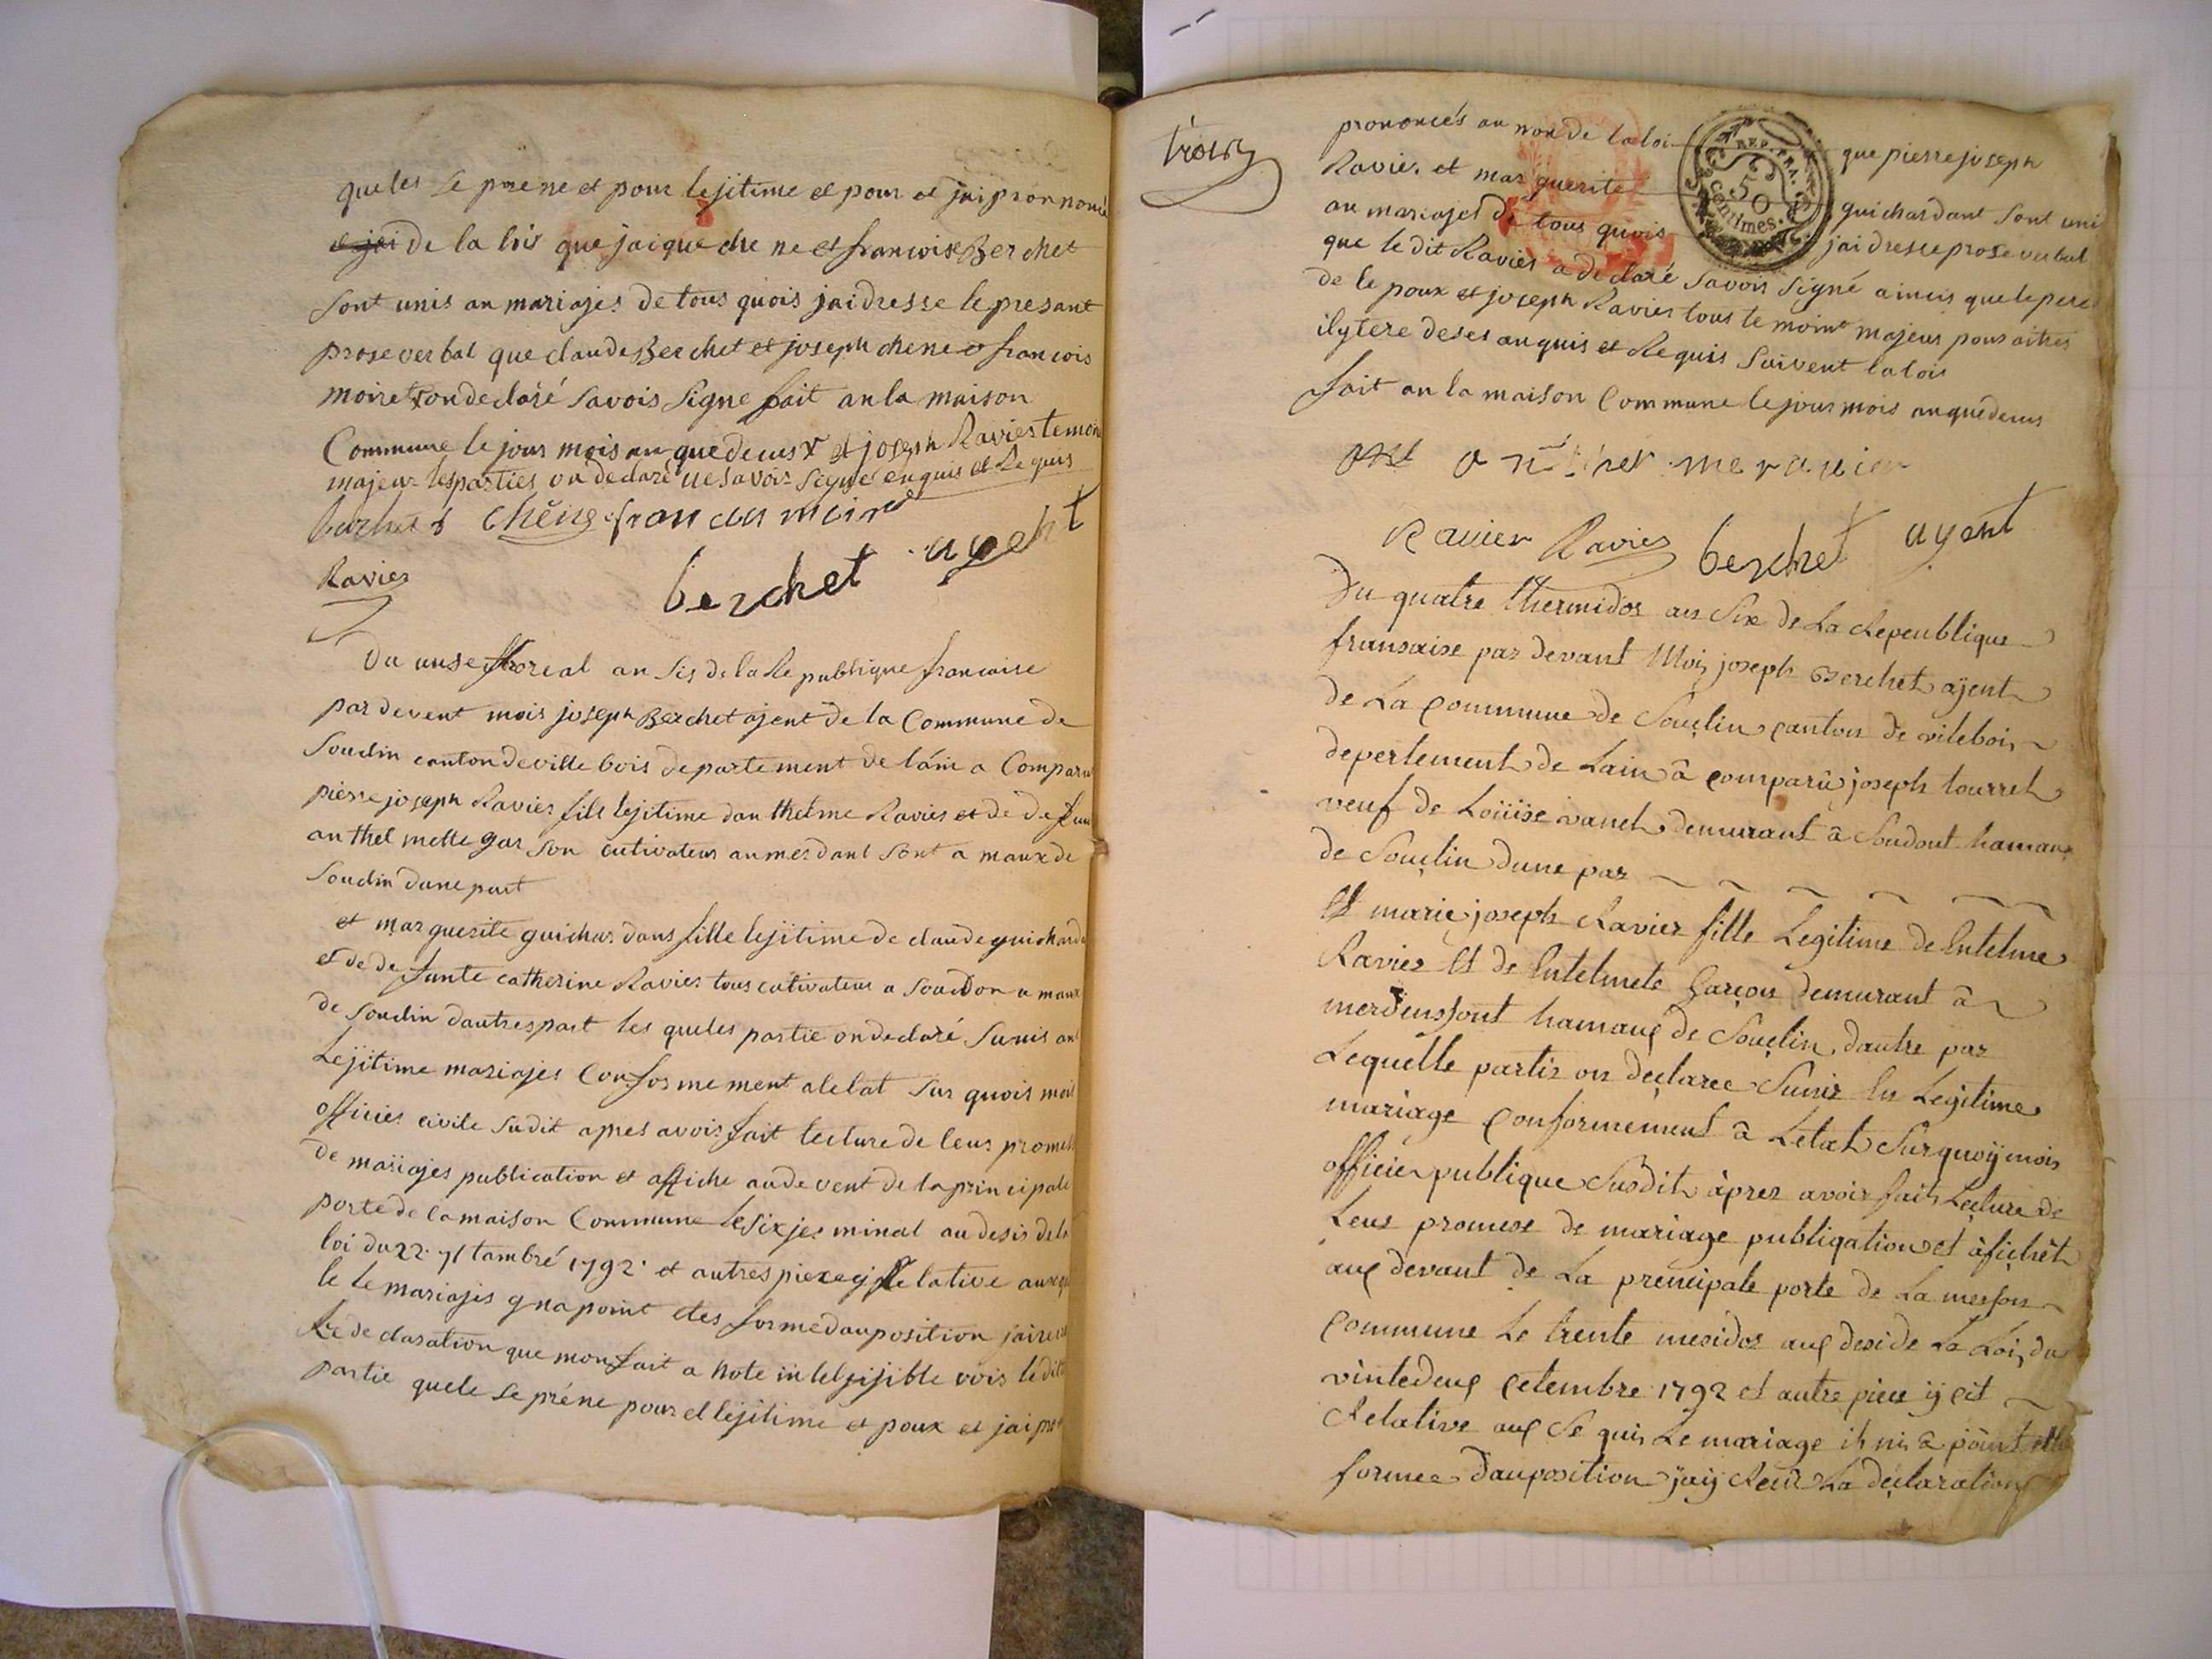 queles se prene et pour lejitime et pour et jai prononcé
de la lois que jaique chene et francoise Berchet
sont unis an mariajes de tous quois jai dresse le presant
proseverbal que claude Berchet et joseph chene et francois
moiret on declaré savois signe fait an la maison
Commune le jour mois an que decus et joseph Ravier temoin
majeur les parties on declaré ne savoir signé enquis et Requis
berchet chêne francois moiret
Ravier
berchet agent
Du onse floreal an sis de la Republique francaise
par devent mois joseph Berchet ajent de la Commune de
Souclin canton de ville bois departement de lain a Comparu
pierre joseph Ravier fils lejitime dan thelme Ravier et de defun
an thel mette garson cutivateur a merdant sont a maux de
Souclin dune part
et marguerite guichardans fille lejitime de claude guichard
et de defunte catherine Ravier tous cutivateur a soudon a maux
de souclin dautres part les queles partie on declaré sunis an
Lejitime mariajes Conformement a letat sur quois mois
officier civile sudit apres avoir fait lecture de leur promes
de mariajes publication et affiche au devent de la principale
porte de la maison Commune le six jerminal au desir de la
loi du 22 7tambré 1792 et autres piece relative
le mariajes gna point etes forme dauposition jai
La declaration que mon fait a hote intelijible vois ledite
partie quele se prene pour et lejitime et poux et jai pro
troix
prononcés au non de la loi que pierre joseph
Ravier et marguerite guichardant sont uni
an mariajes de tous quois jai dresse prose verbal
que le dit Ravier a declaré savoir signé aincis que le pere
de le poux et joseph Ravier tous te moint majeur pour aitres
ilytere deses anquis et Requis suivent la lois
fait an la maison Commune le jour mois an que decus
REP. FRA.
50
Centimes.
Ravier Ravier berchet agent
Du quatre thermidor an six de La Republique
fransaise par devant Moi joseph Berchet ajent
de La Commune de Souclin canton de vilebois
depertement de Lain â comparû joseph tourret
veuf de Loüise vanel demurant â Soudout hamau
de Souclin dune par
Et marie joseph Ravier fille Legitime de Entelme
Ravier Et de Entelmete Garçon demurant â
merdenssont hamaux de Souclin dautre par
Lequelle partis on declaree Sunir En Legitime
mariage Conformement â Letat Surquoÿ mois
officier publique Susdit âpres avoir fait Lecture de
Leur promese de mariage publication et âfichêt
aux devant de La prencipale porte de La meson
Commune Le trente mesidor aux desir de La Loi du
vintedeux Cetembre 1792 et autre piece ÿ cit
Relative aux Se quis Le mariage il ni â pôint etté
formee dauposition jaÿ Reçu La declaration